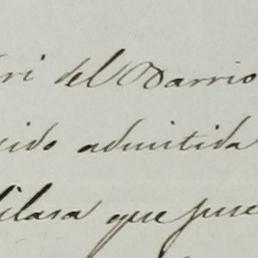 ri del Barrio
cido admitida
ilasa que fuse